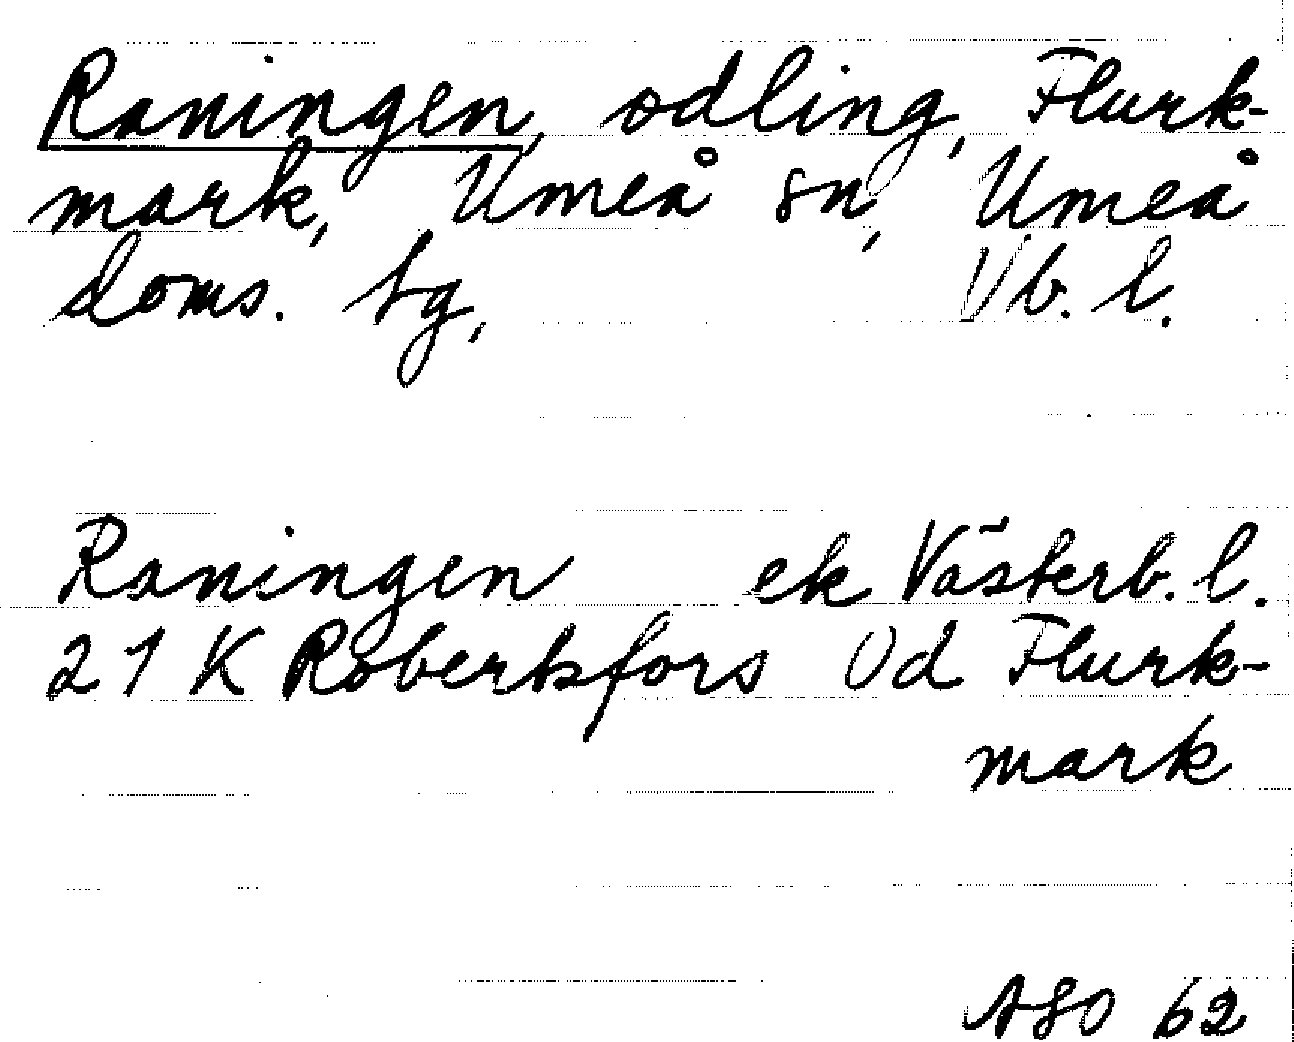 Raningen, odling, Flurk-
mark, Umeå sn, Umeå
doms. tg, Vb. l.
Raningen ek Västerb. l.
21 K Robertsfors 0d Flurk-
mark
ASO 62